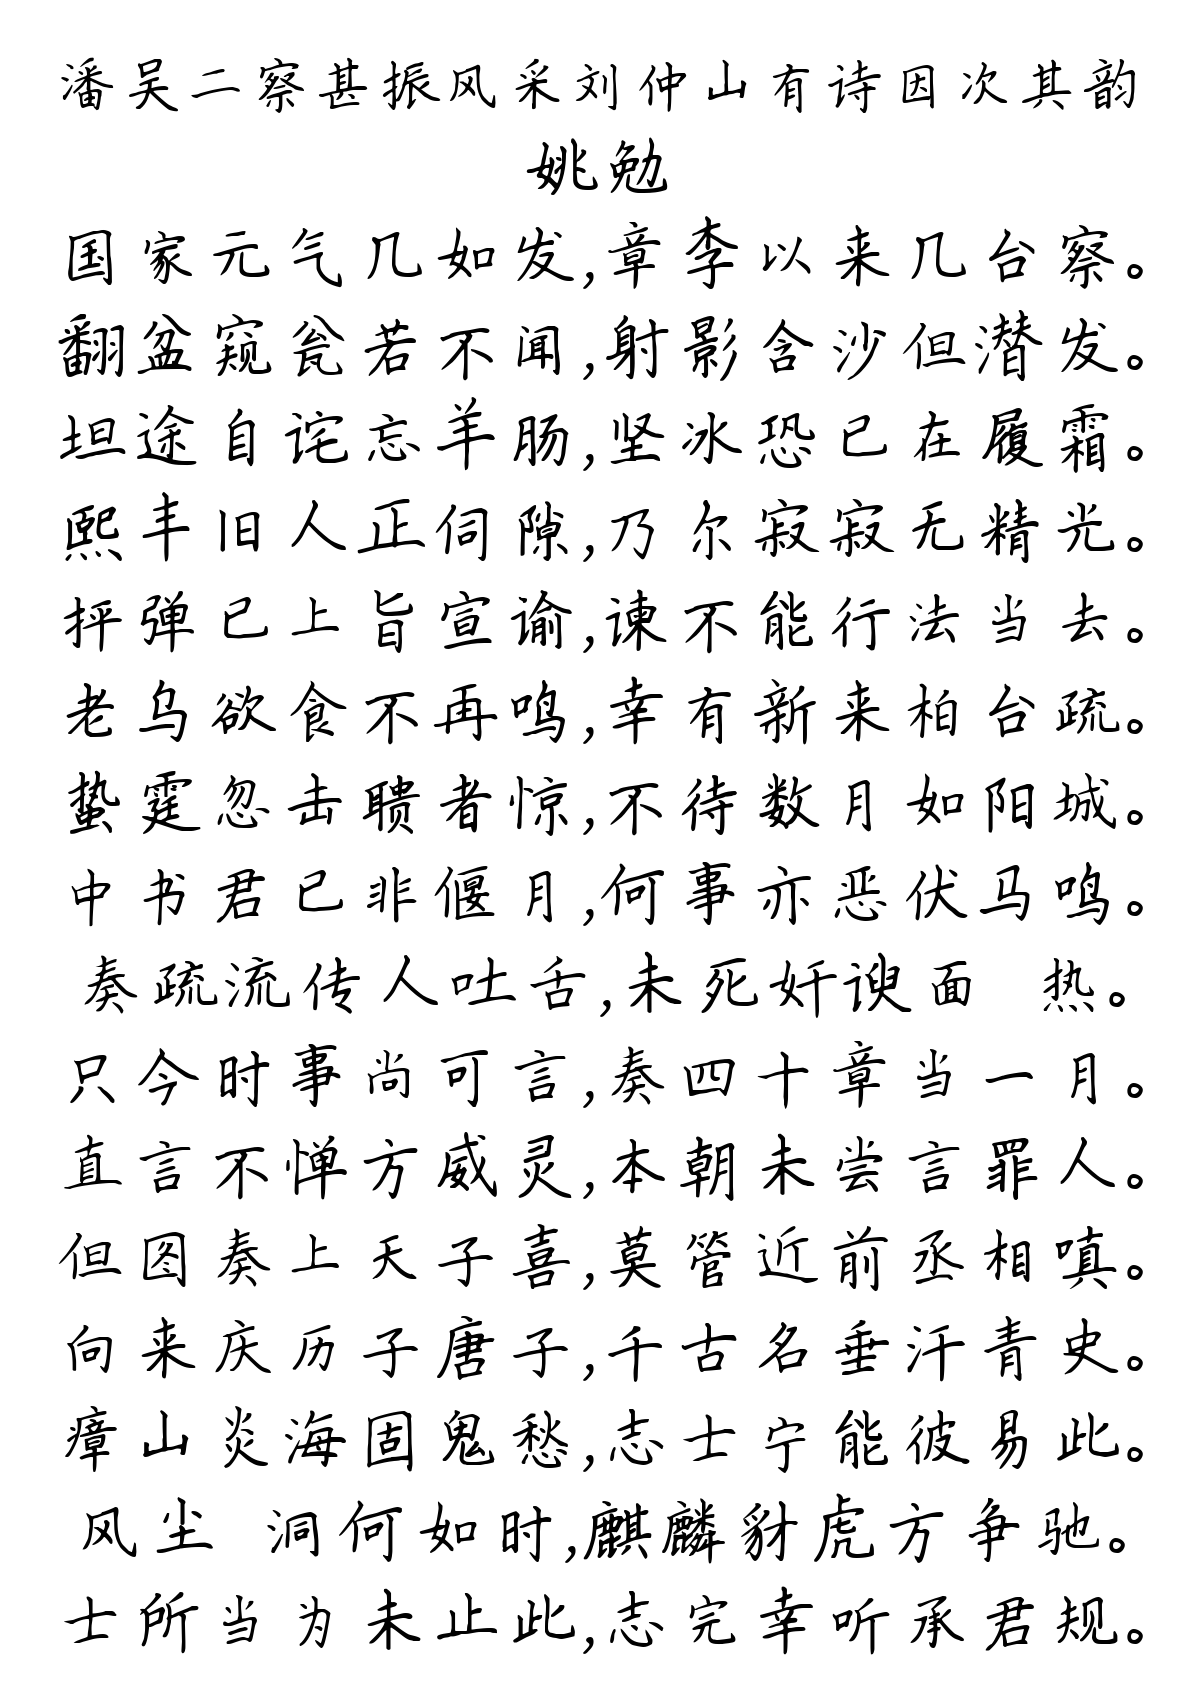 潘吴二察甚振风采刘仲山有诗因次其韵
姚勉
国家元气几如发,章李以来几台察。
翻盆窥瓮若不闻,射影含沙但潜发。
坦途自诧忘羊肠,坚冰恐已在履霜。
熙丰旧人正伺隙,乃尔寂寂无精光。
抨弹已上旨宣谕,谏不能行法当去。
老乌欲食不再鸣,幸有新来柏台疏。
蛰霆忽击聩者惊,不待数月如阳城。
中书君已非偃月,何事亦恶伏马鸣。
奏疏流传人吐舌,未死奸谀面 热。
只今时事尚可言,奏四十章当一月。
直言不惮方威灵,本朝未尝言罪人。
但图奏上天子喜,莫管近前丞相嗔。
向来庆历子唐子,千古名垂汗青史。
瘴山炎海固鬼愁,志士宁能彼易此。
风尘 洞何如时,麒麟豺虎方争驰。
士所当为未止此,志完幸听承君规。